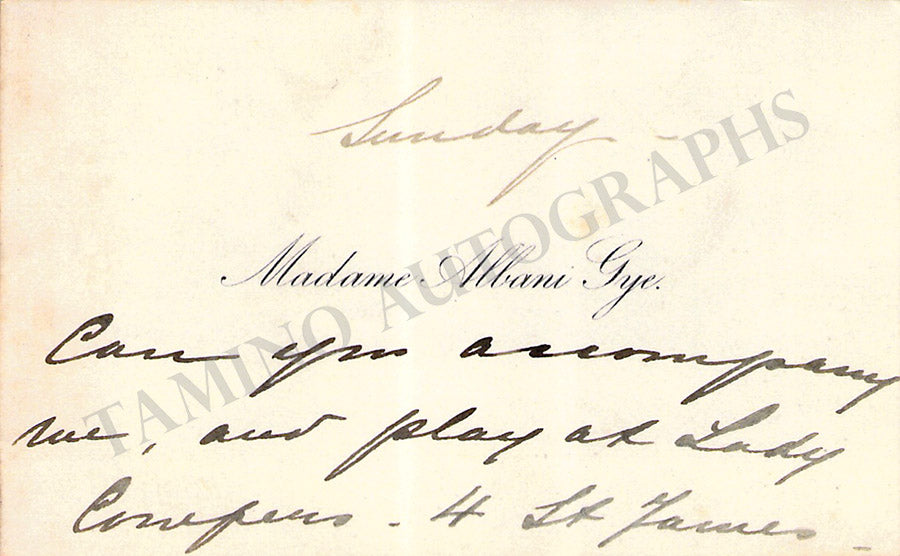 Sunday -
Madame Albani Gye.
Can you accompany
me, and play at Lady
Cowpers - 4 St James
TAMINO AUTOGRAPHS